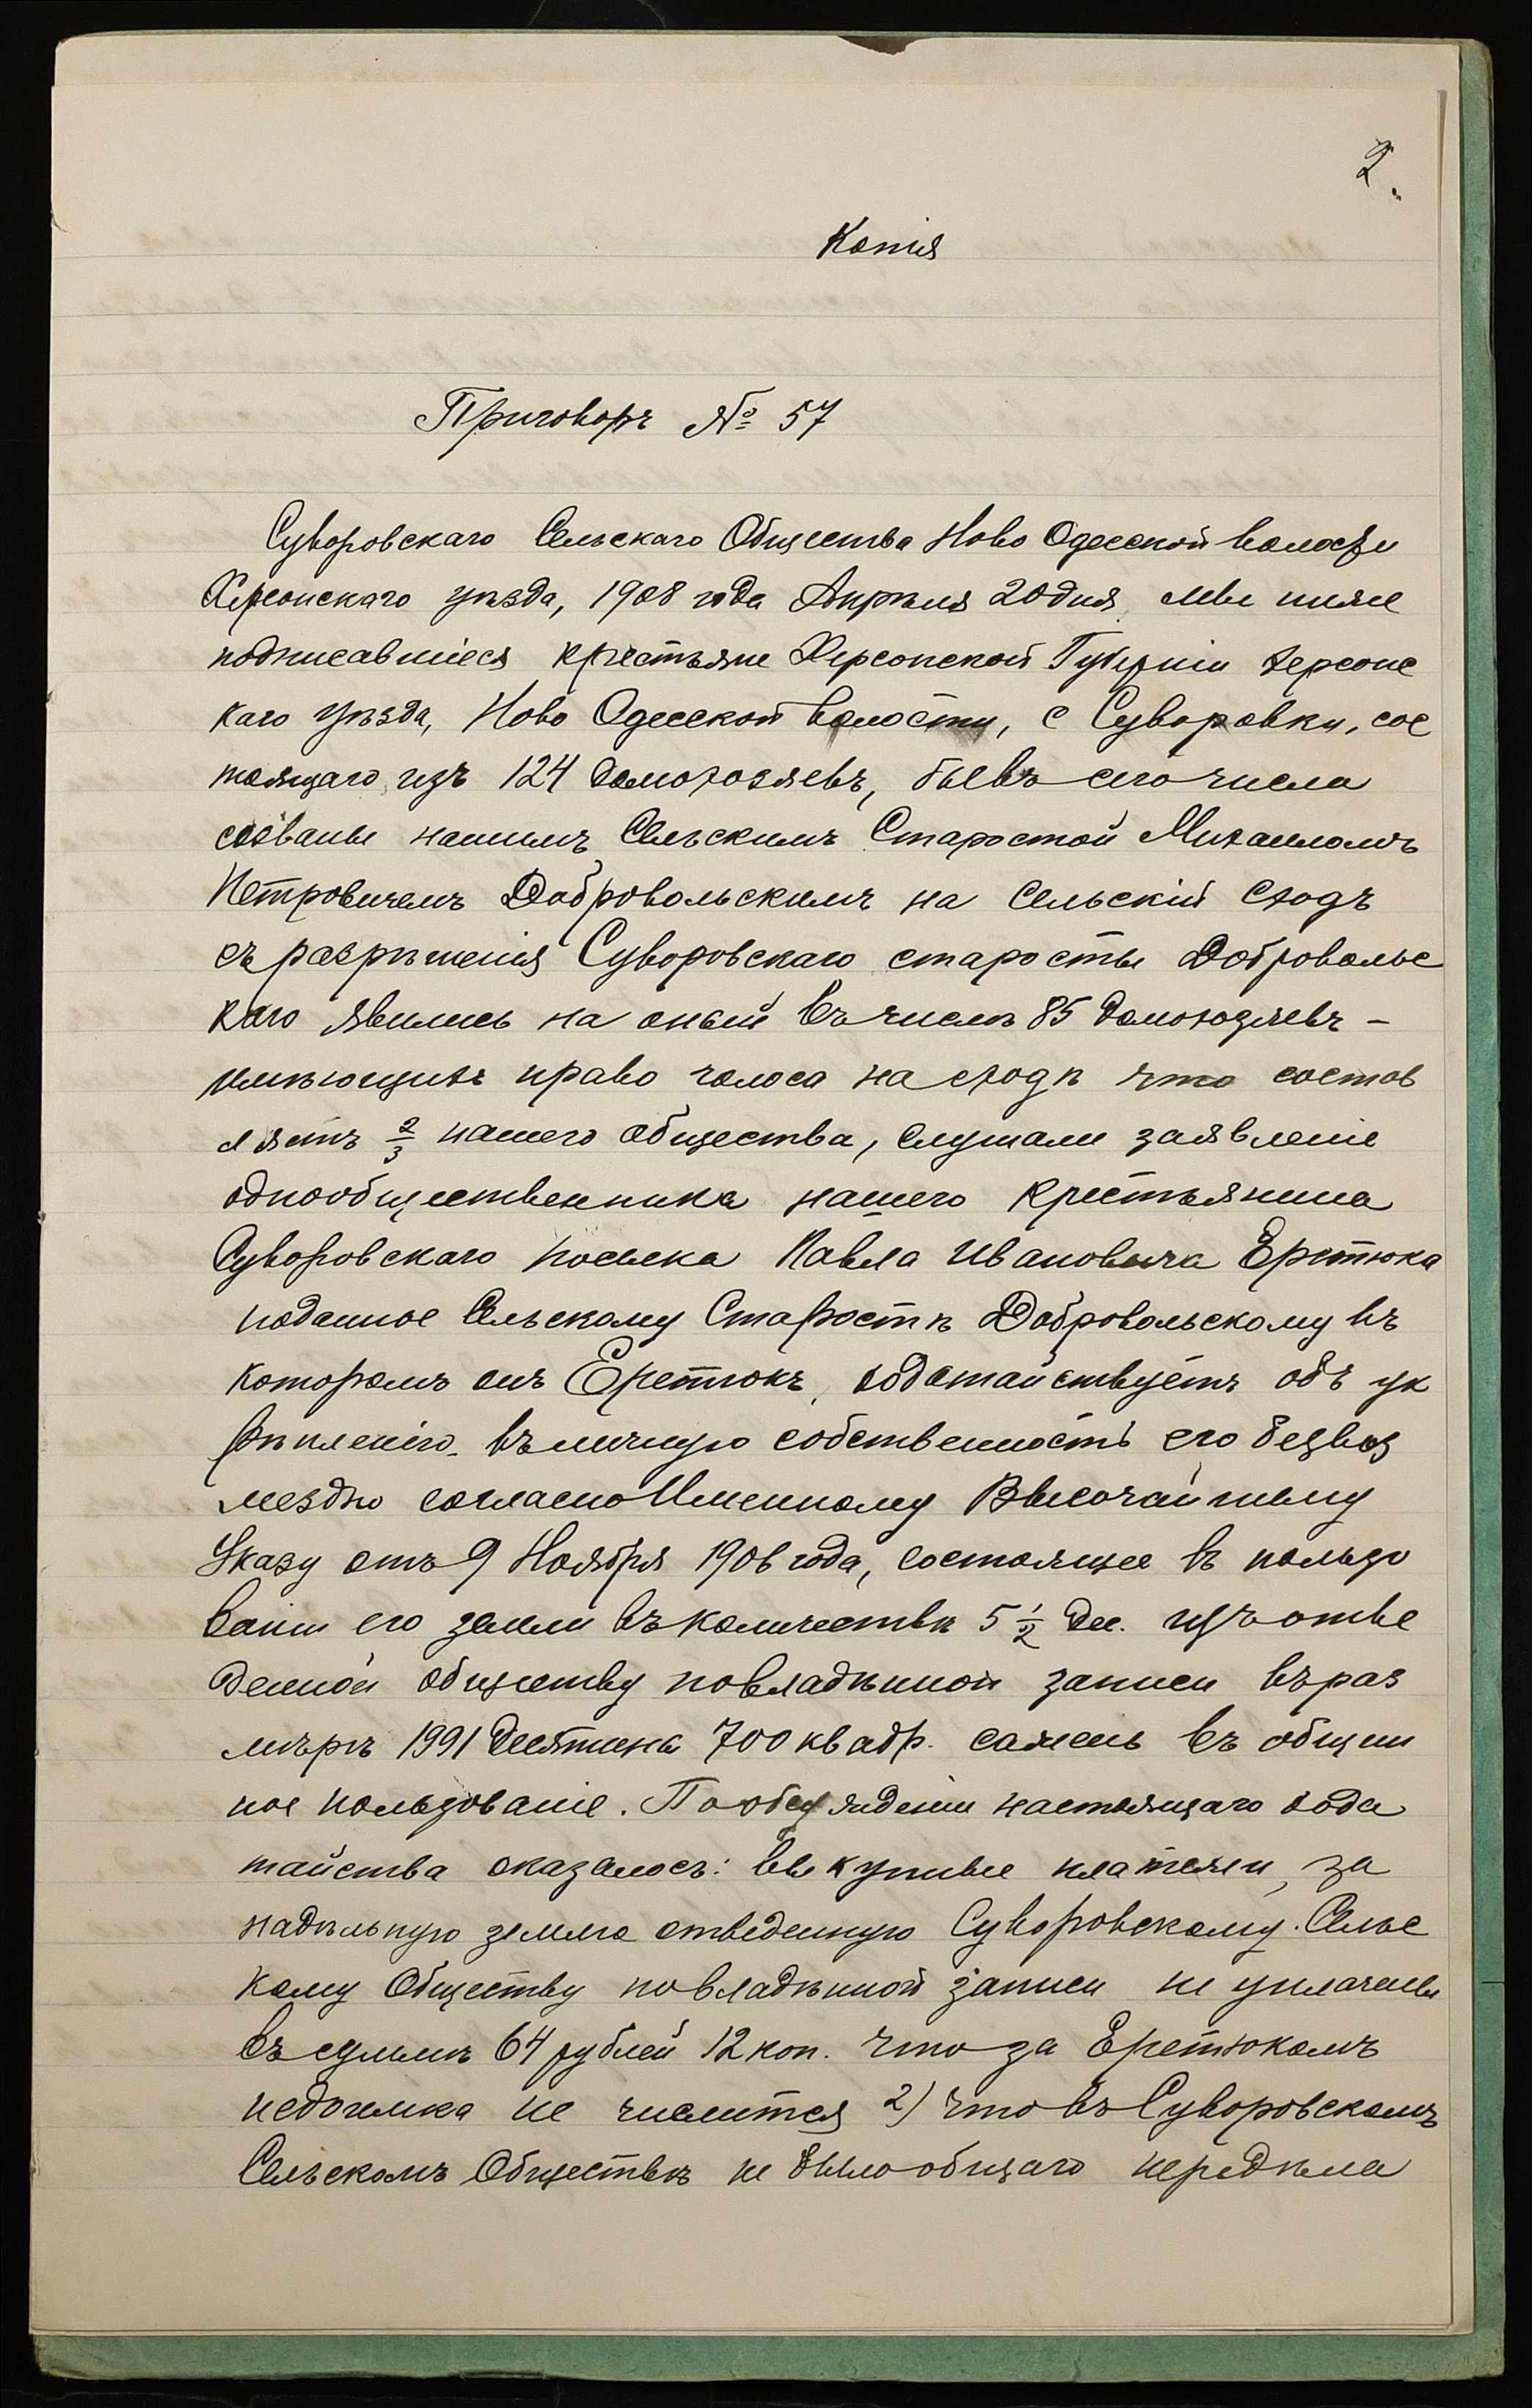 2.
Копія
Приговоръ № 57
Суворовскаго Сельскаго Общества Ново Одесской волости
Херсонскаго уѣзда, 1908 года Апрѣля 20 дня, мы ниже
подписавшіеся крестьяне Херсонской Губерніи Херсонс
каго уѣзда, Ново Одесской волости, с Суворовки, сос
тоящаго изъ 124 домохозяевъ, бывъ сего числа
созваны нашимъ Сельскимъ Старостой Михаиломъ
Петровичемъ Добровольскимъ на Сельскій Сходъ
съ разрѣшенія Суворовскаго старосты Добровольс
каго явились на оный въ числѣ 85 домохозяевъ –
имѣющихъ право голоса на сходѣ что состав
ляетъ 2/3 нашего общества, слушали заявленіе
однообщественника нашего крестьянина
Суворовскаго поселка Павла Ивановича Еретюка
поданное Сельскому Старостѣ Добровольскому въ
которомъ онъ Еретюкъ, ходатайствуетъ объ ук
рѣпленію въ личную собственность его безвоз
мездно согласно Именному Высочайшему
Указу отъ 9 Ноября 1906 года, состоящее въ пользо
ваніи его земли въ количествѣ 5 1/2 дес. изъ отве
денной обществу по владѣнной записи въ раз
мѣрѣ 1991 десятина 700 квадр. сажень въ общин
ное пользованіе. По обсужденіи настоящаго хода
тайства оказалось: выкупные платежи, за
надѣльную землю отведенную Суворовскому. Сельс
кому Обществу по владѣнной записи не уплачены
въ суммѣ 64 рублей 12 коп. что за Еретюкомъ
недоимка не числится 2) что въ Суворовскомъ
Сельскомъ Обществѣ не было общаго передѣла